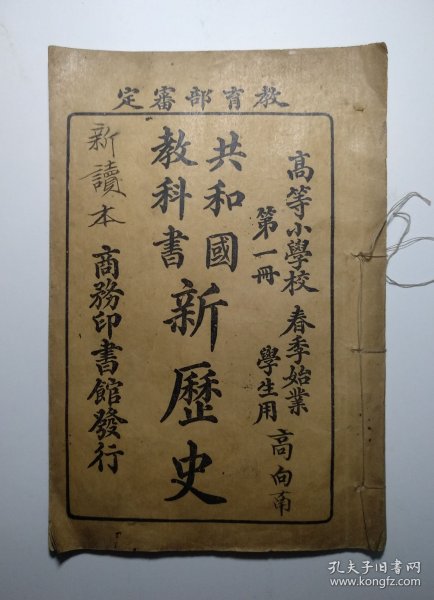 教育部審定
高等小學校 春季始業
第一冊 學生用
高向甭
共和國
教科書
新歷史
新讀本
商務印書館發行
孔夫子旧书网
www.kongfz.com